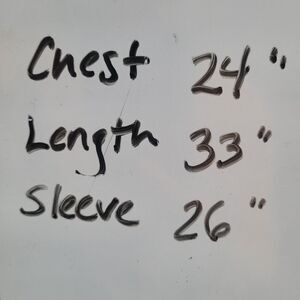 Chest 24"
Length 33"
Sleeve 26"